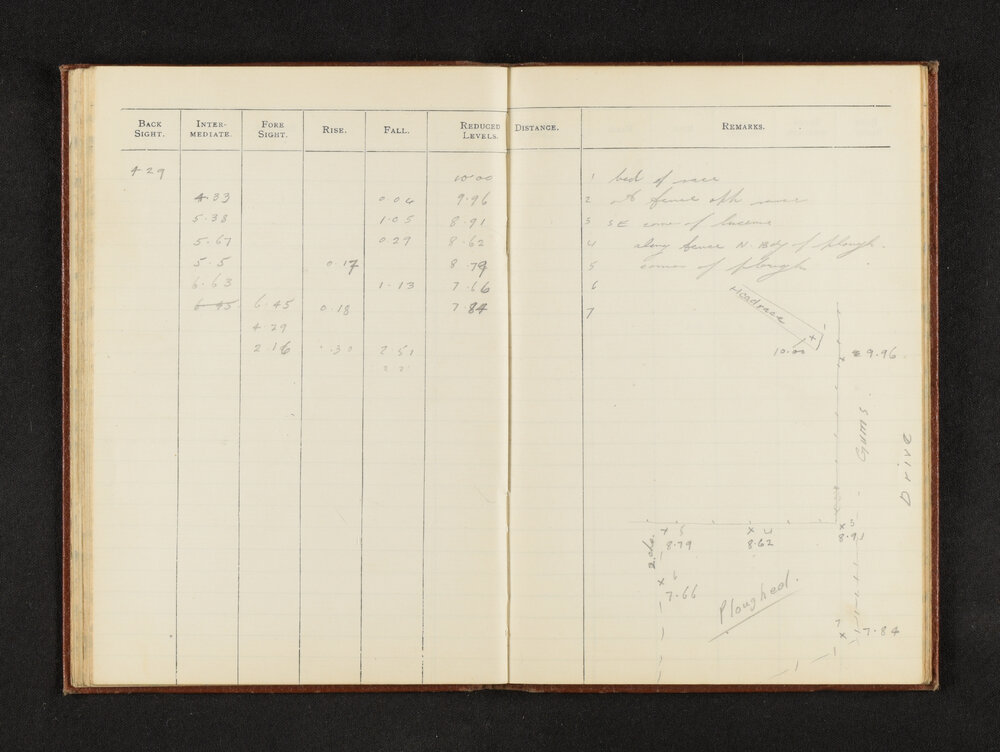 BACK SIGHT. INTER-MEDIATE. FORE SIGHT. RISE. FALL. REDUCED LEVELS. DISTANCE. REMARKS.
4.29 10.00 1 bed of race
4.33 0.04 9.96 2 fence opp race
5.38 1.05 8.91 3 SE corner of lucerne
5.67 0.29 8.62 4 along fence N. Bdy of plough.
5.5 0.17 8.79 5 corner of plough
6.63 1.13 7.66 6
6.45 6.45 0.18 7.84 7
4.29
2.16 .30 2.51
Headrace
10.00
9.96
Gums
Drive
5
8.79
4
8.62
3
8.91
6
7.66
Ploughed.
7
7.84